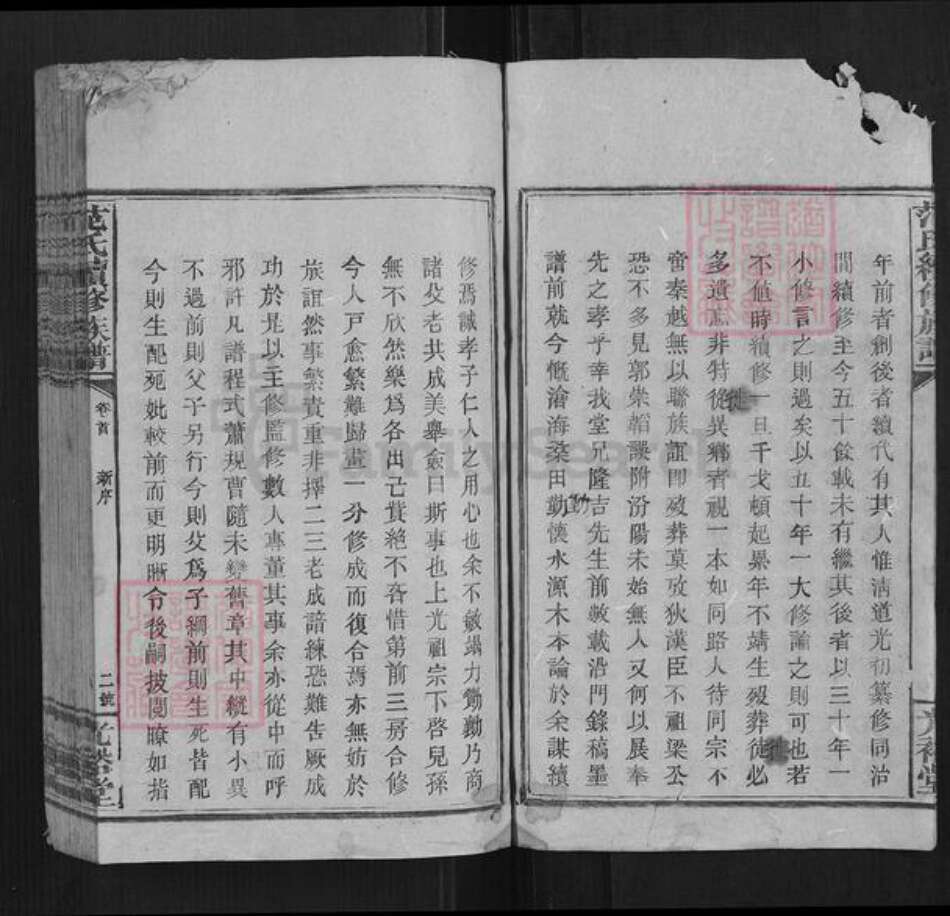 年前者創後者續代有其人惟淸道光初纂修同治
間續修至今五十餘載未有繼其後者以三十年一
小修言之則過矣以五十年一大修論之則可也若
不値時續修一旦干戈頓起累年不靖生殁葬徙必
多遺忘非特從異鄉者視一本如同路人待同宗不
啻秦越無以聯族誼即殁葬莫攷狄漢臣不祖梁公
恐不多見郭崇韜謬附汾陽未始無人又何以展奉
先之孝乎幸我堂兄隆吉先生前數載沿門錄稿墨
譜前就今慨滄海桑田勤懷水源木本論於余謀續
修焉誠孝子仁人之用心也余不敏竭力勷勷乃商
諸父老共成美舉僉曰斯事也上光祖宗下啓兒孫
無不欣然樂爲各出己貲絕不吝惜第前三房合修
今人戸愈繁難歸畫一分修成而復合焉亦無妨於
族誼然事繁責重非擇二三老成諳練恐難吿厥成
功於是以主修監修數人專董其事余亦從中而呼
邪許凡譜程式蕭規曹隨未變舊章其中縱有小異
不過前則父子另行今則父爲子綱前則生死皆配
今則生配死妣較前而更明晰令後嗣披閱瞭如指
范氏續修族譜
卷首
新序
二號